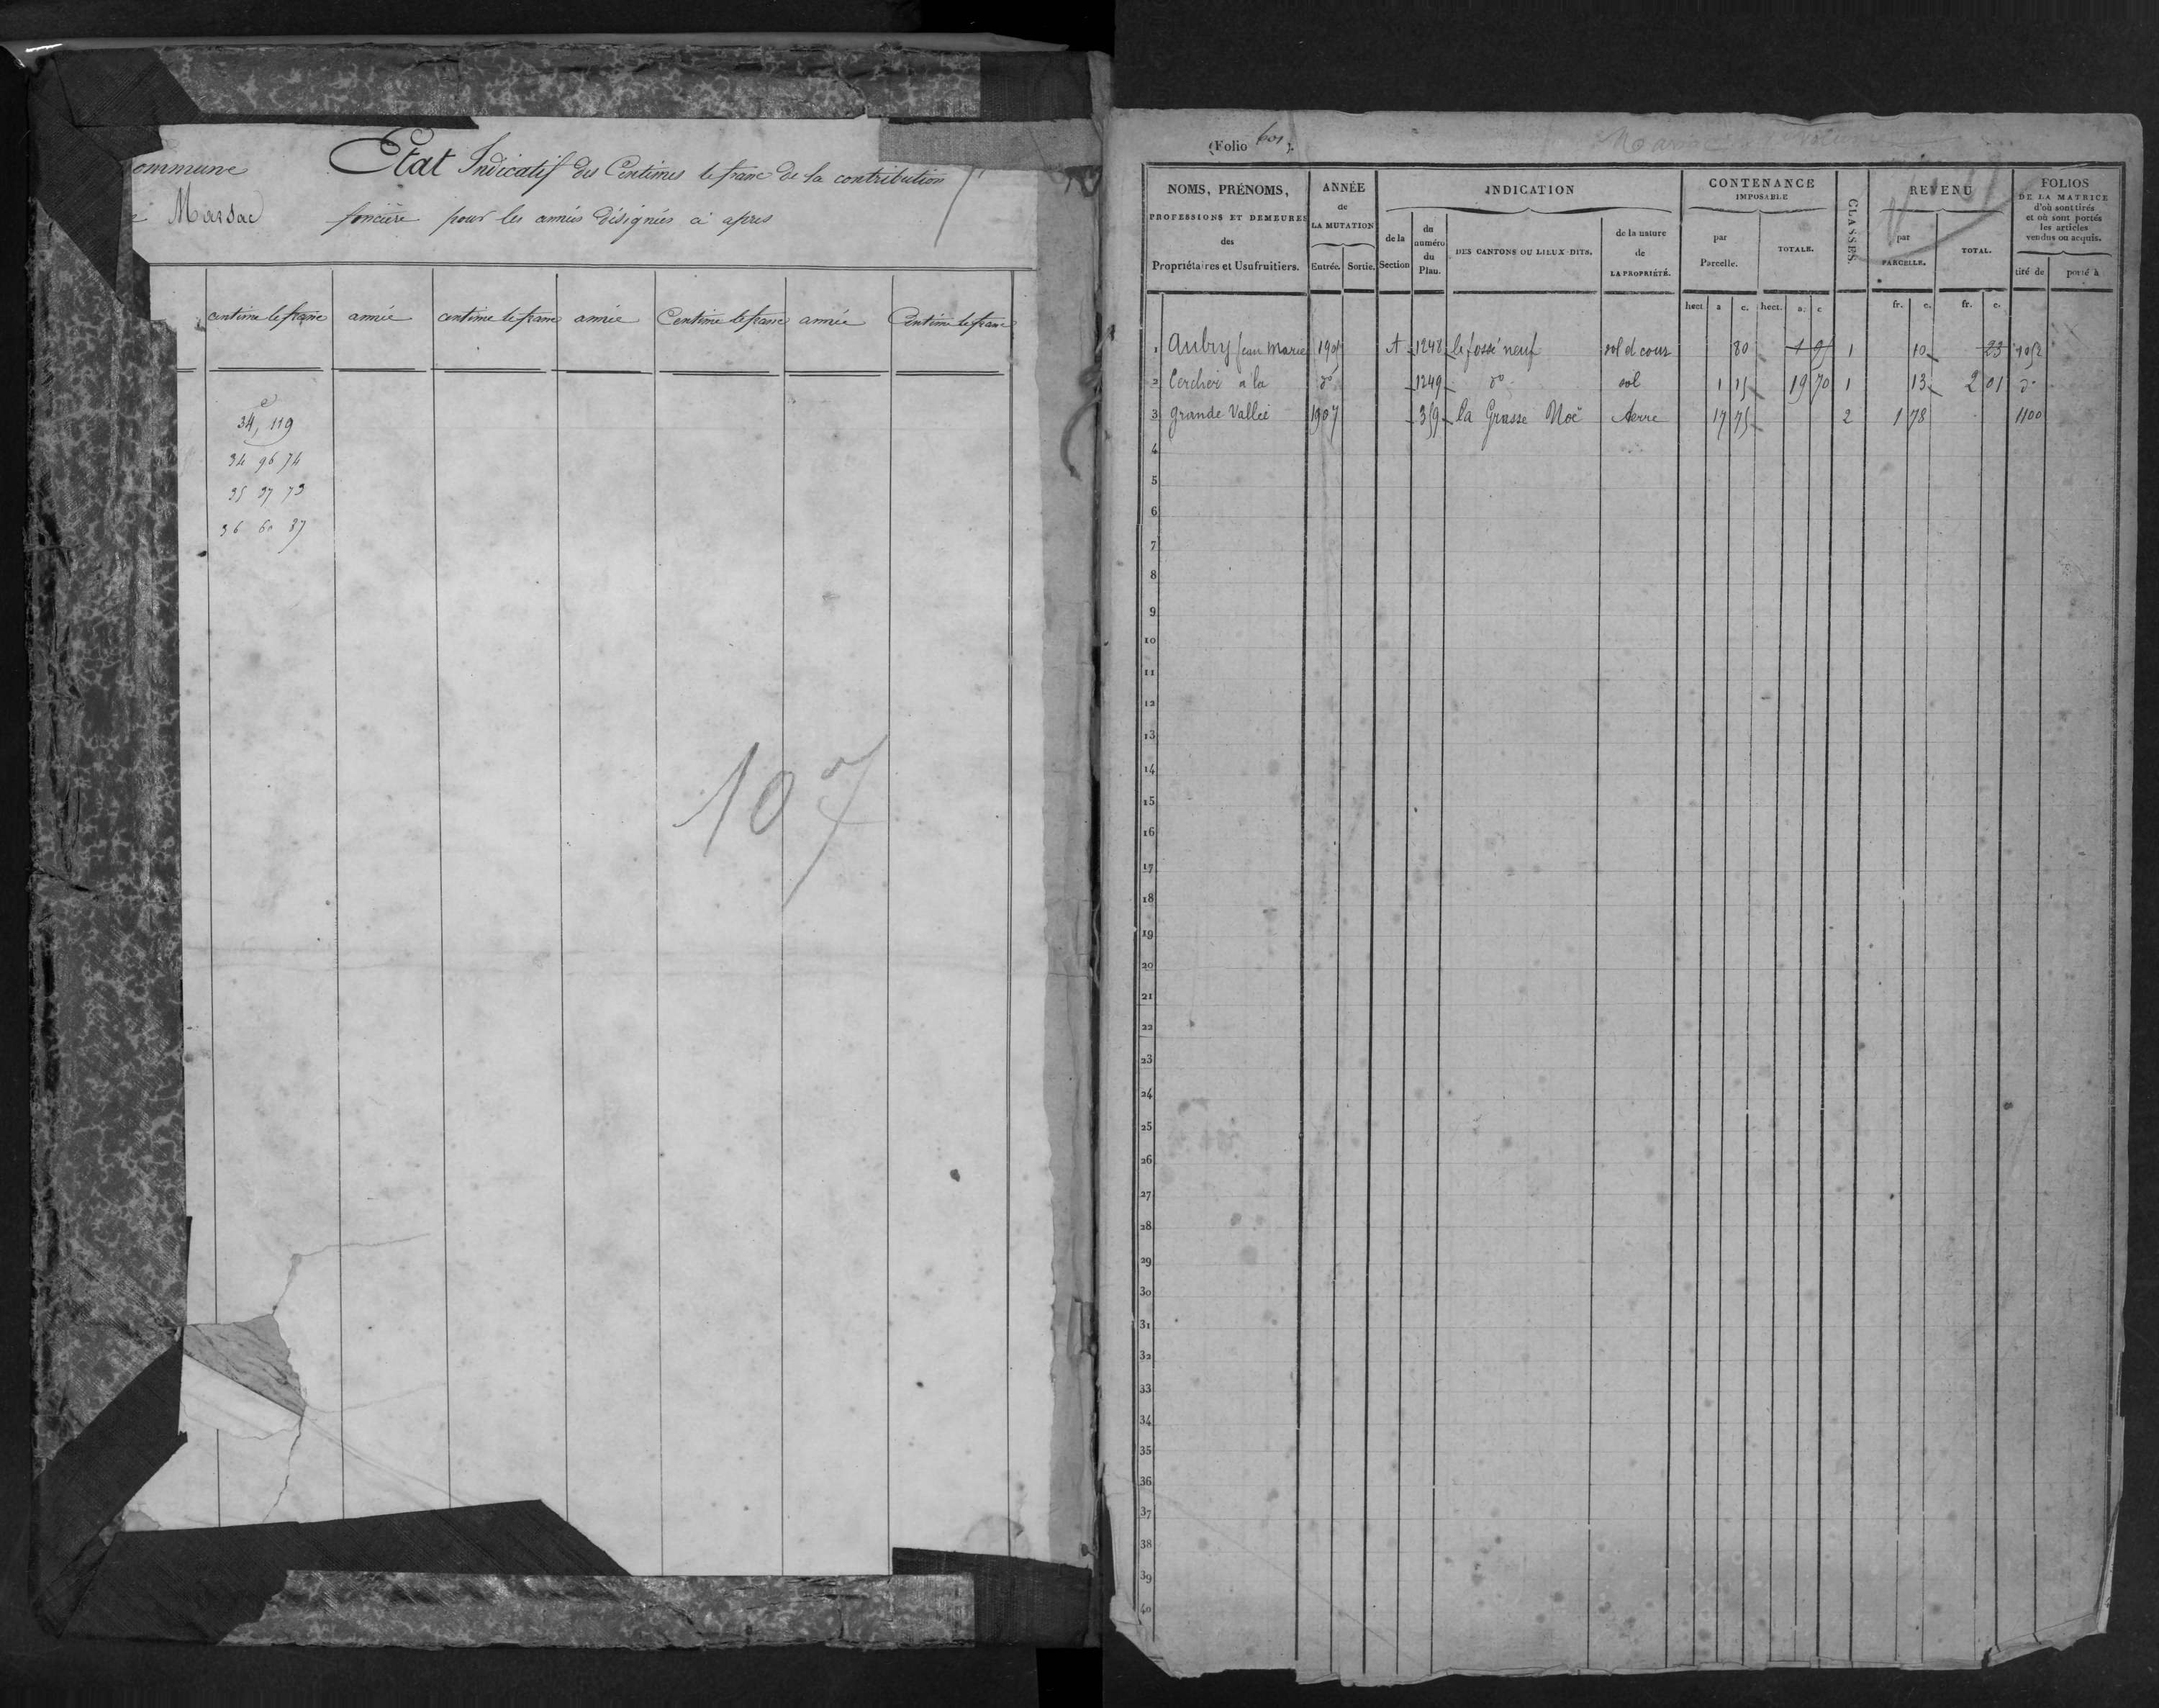 ommune
Etat Indicatif des Centimes le franc de la contribution
Marsac foncière pour les années désignées ci après
centime le franc année centime le franc année Centime le franc année Centime le franc
34, 119
34 96 74
35 37 73
36 60 87
107
(Folio 601).
NOMS, PRÉNOMS,
PROFESSIONS ET DEMEURES
des
Propriétaires et Usufruitiers.
ANNÉE
de
LA MUTATION
Entrée. Sortie.
INDICATION
de la
Section
du
numéro
du
Plan.
DES CANTONS OU LIEUX-DITS.
de la nature
de
LA PROPRIÉTÉ.
CONTENANCE
IMPOSABLE
par
Parcelle.
TOTALE.
CLASSES.
REVENU
par
PARCELLE.
TOTAL.
FOLIOS
DE LA MATRICE
d'où sont tirés
et où sont portés
les articles
vendus ou acquis.
tiré de porté à
hect. a c. hect. a. c fr. c. fr. c.
1 Aubry Jean Marie 1905 A 1248 le fossé neuf sol et cour 80 1 95 1 10 23 1052
2 Cercher à la do 1249 do sol 1 15 19 70 1 13 2 01 do
3 grande Vallée 1907 359 la Grasse Noë terre 17 75 2 1 78 1100
4
5
6
7
8
9
10
11
12
13
14
15
16
17
18
19
20
21
22
23
24
25
26
27
28
29
30
31
32
33
34
35
36
37
38
39
40